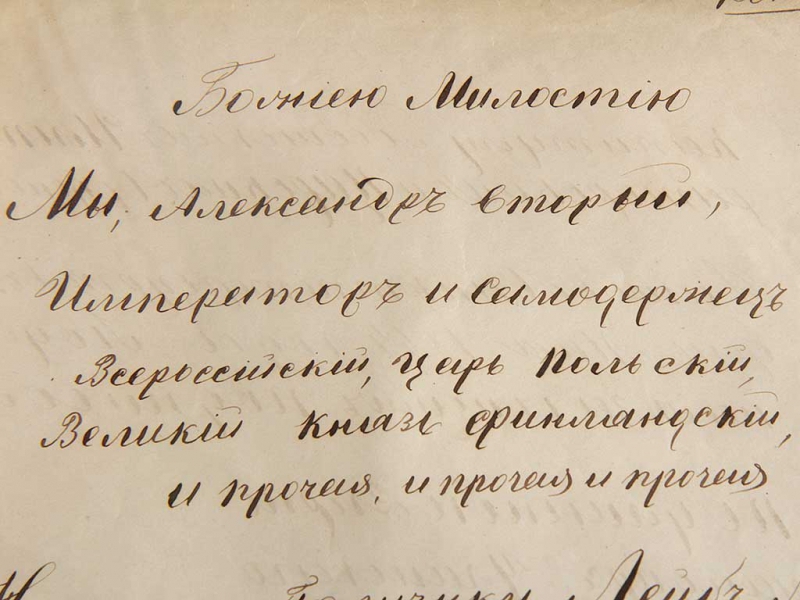 Божіею Милостію
Мы, Александръ вторый,
Императоръ и Самодержецъ
Всероссійскій, Царь Польскій,
Великій Князь Финляндскій,
и прочая, и прочая и прочая